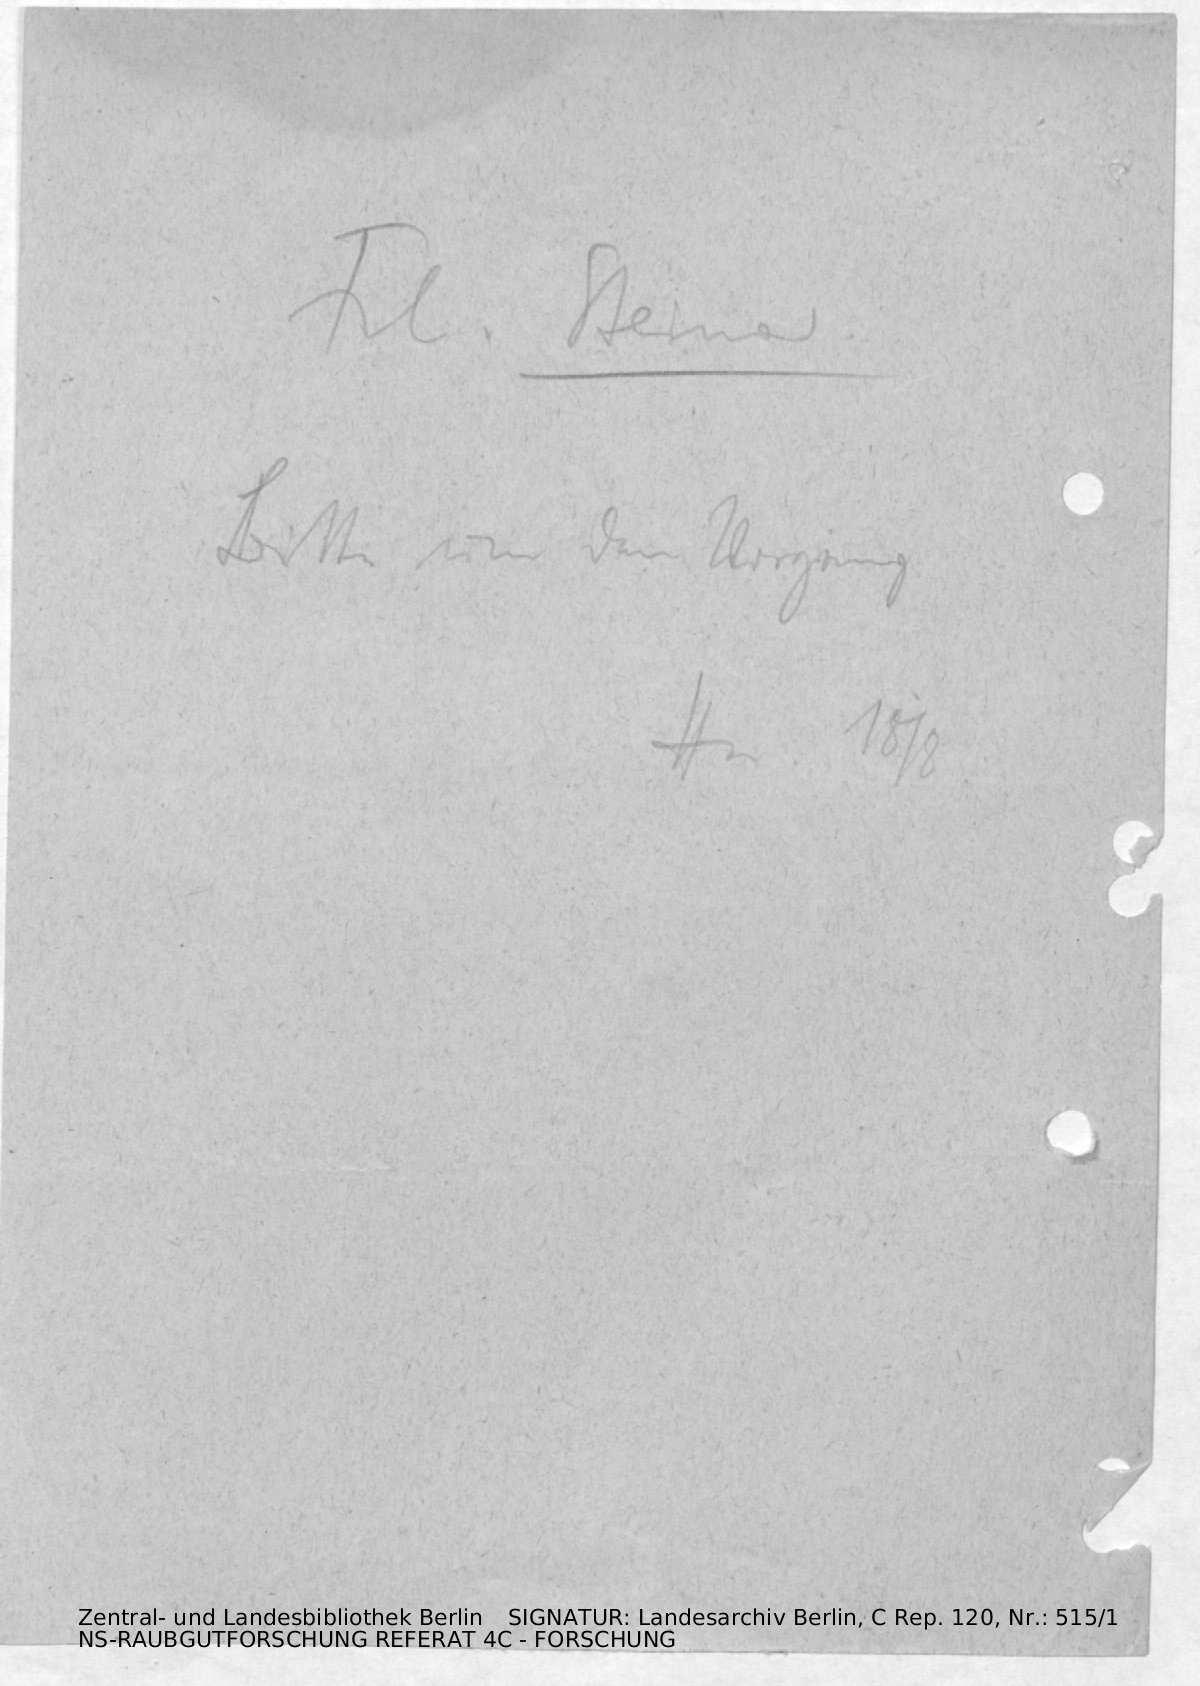 Frl. Steiner
Bitte um den Vorgang
18/8
Zentral- und Landesbibliothek Berlin SIGNATUR: Landesarchiv Berlin, C Rep. 120, Nr.: 515/1
NS-RAUBGUTFORSCHUNG REFERAT 4C - FORSCHUNG